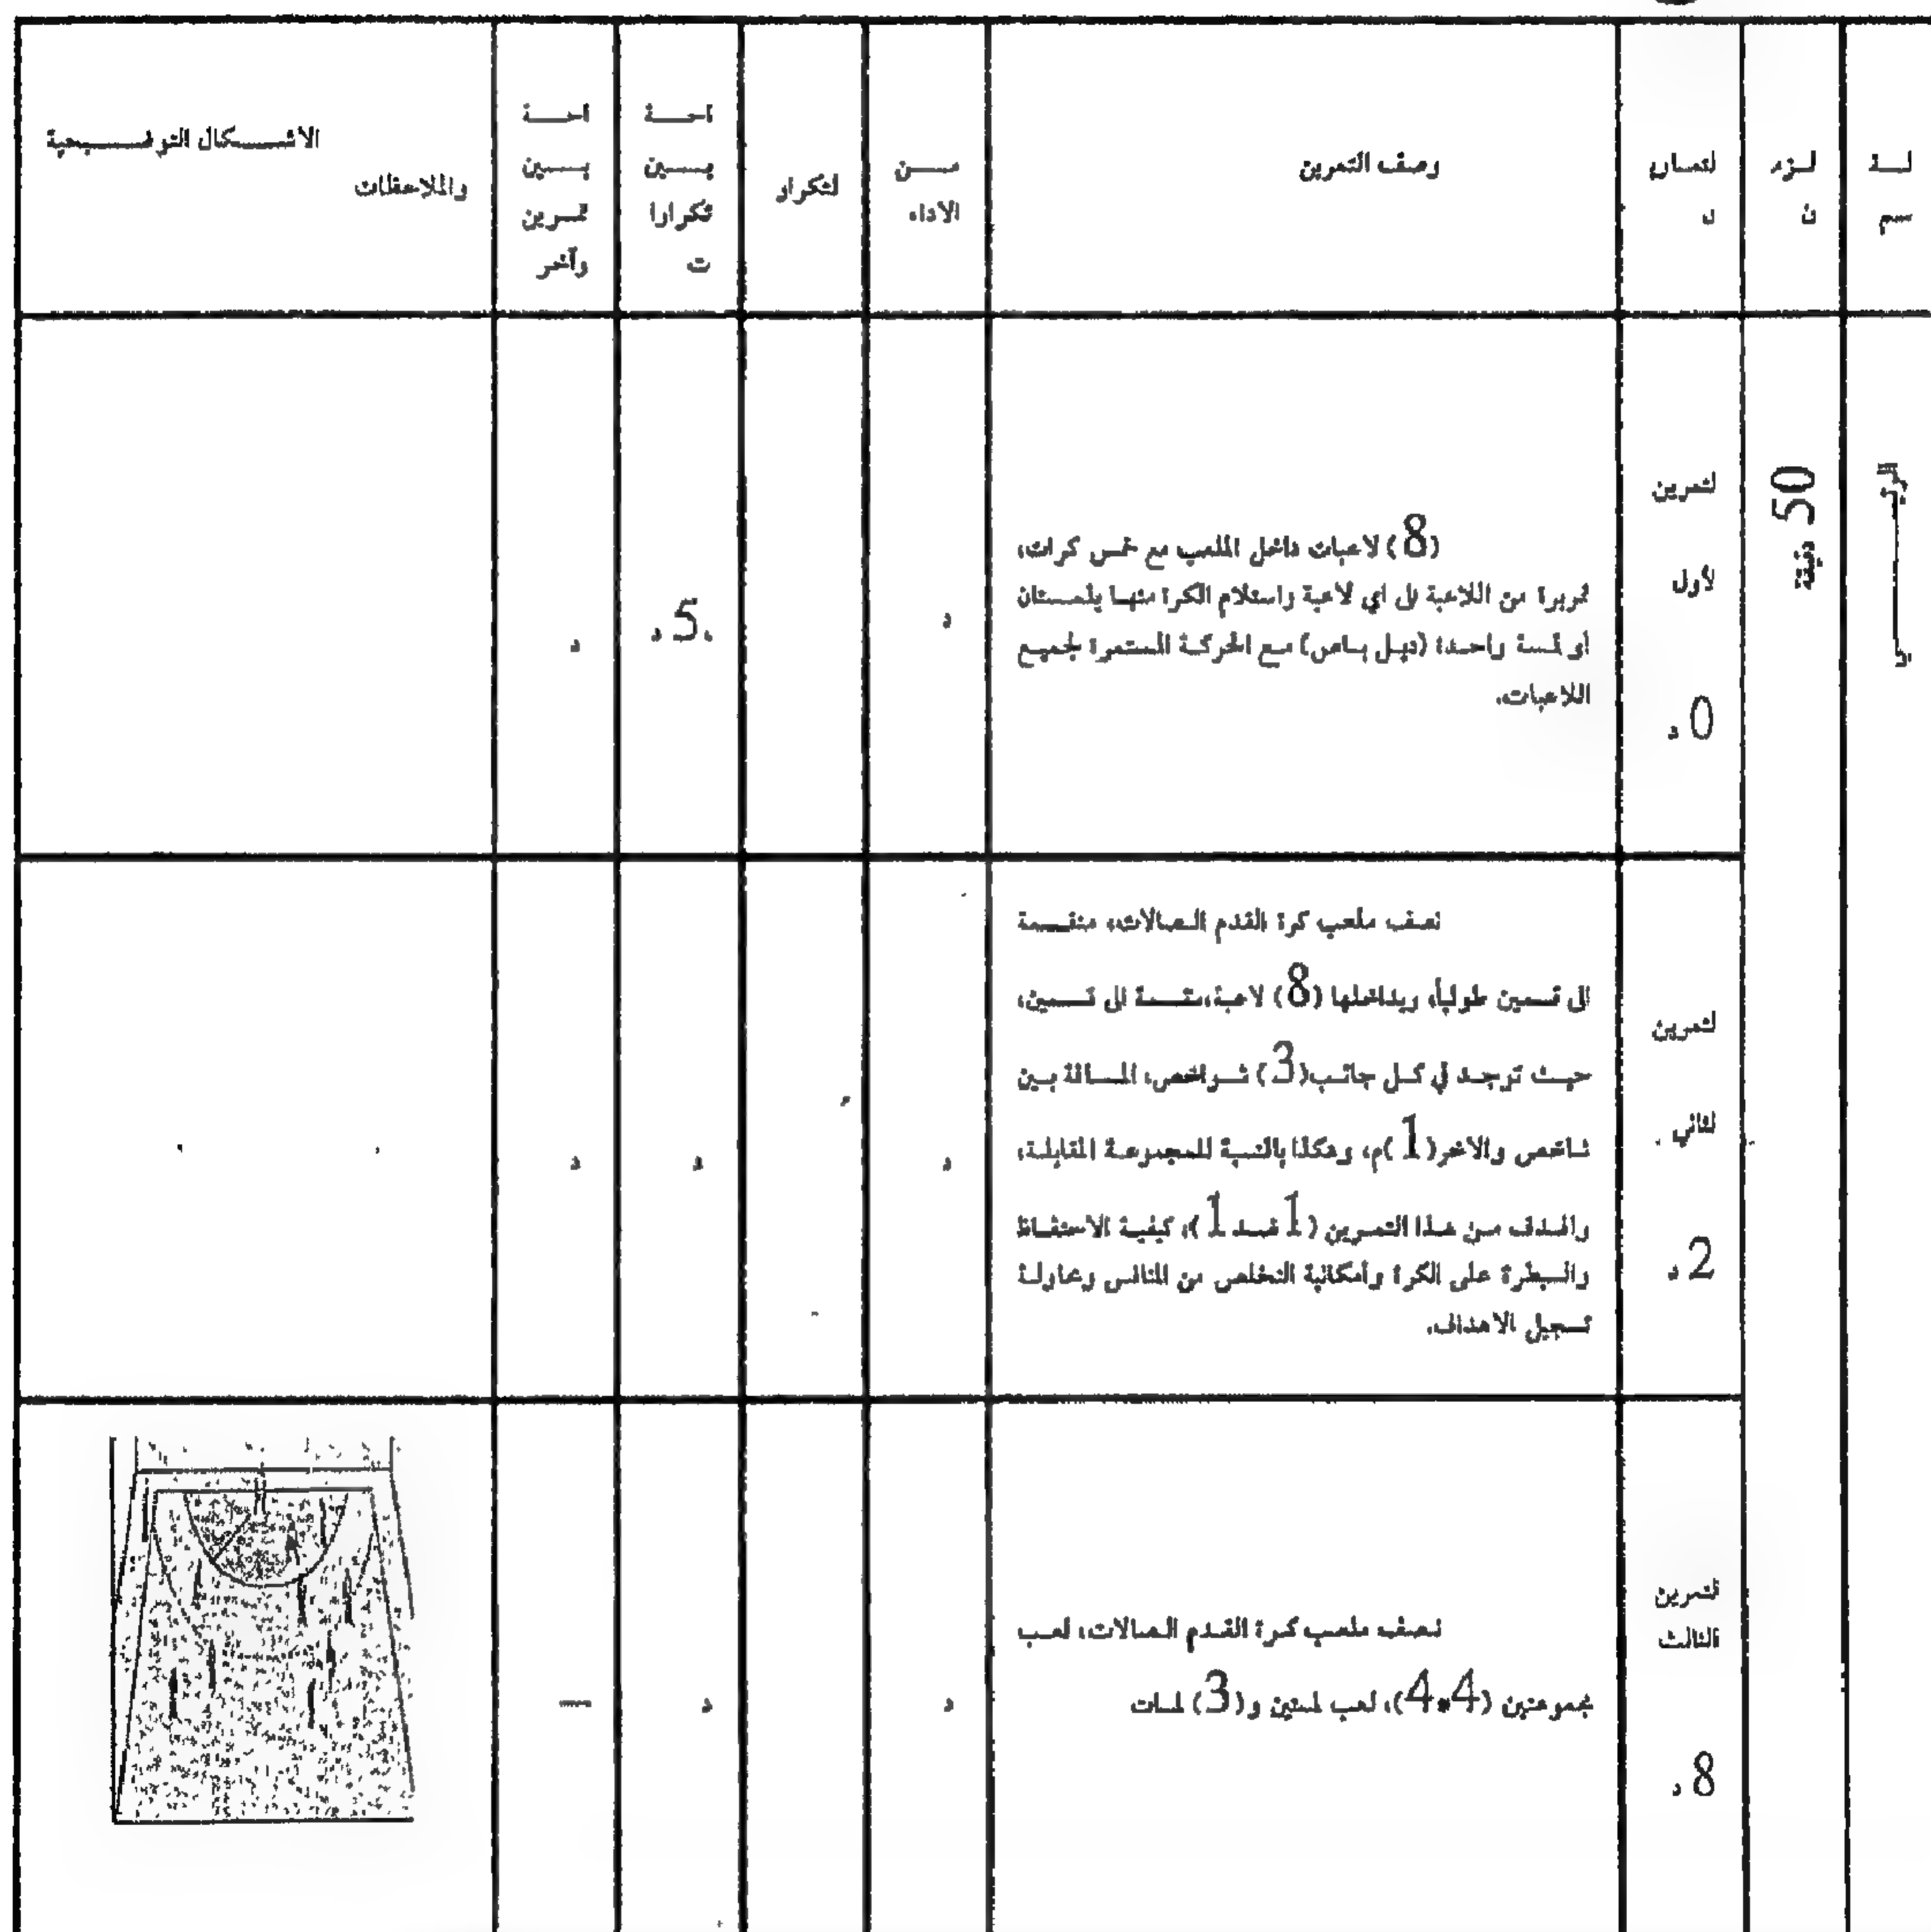 لتمارين
وصف التمرين
الاداء
لتكرار
بين
تكرارا
ت
بين
تمرين
وآخر
الاشكال التوضيحية
والملاحظات
50 دقيقة
لتمرين
لأول
0 د.
(8) لاعبات داخل الملعب مع خمس كرات،
تمريرة من اللاعبة الى اي لاعبة واستلام الكرة منها بلمستان
أو لمسة واحدة (دبل باص) مع الحركة المستمرة لجميع
اللاعبات.
د
.5 د
د
لتمرين
لثاني
2 د.
نصف ملعب كرة القدم الصالات، منقسمة
الى قسمين طولياً، وبداخلها (8) لاعبة، مقسمة الى قسمين،
حيث توجد في كل جانب (3) شواخص، المسافة بين
شاخص والاخر (1)م، وهكذا بالنسبة للمجموعة المقابلة،
والهدف من هذا التمرين (1 ضد 1)، كيفية الاحتفاظ
والسيطرة على الكرة وأمكانية التخلص من المنافس ومحاولة
تسجيل الاهداف.
د
د
د
لتمرين
الثالث
8 د.
نصف ملعب كرة القدم الصالات، لعب
مجموعتين (4*4)، لعب لمستين و(3) لمسات
د
د
—